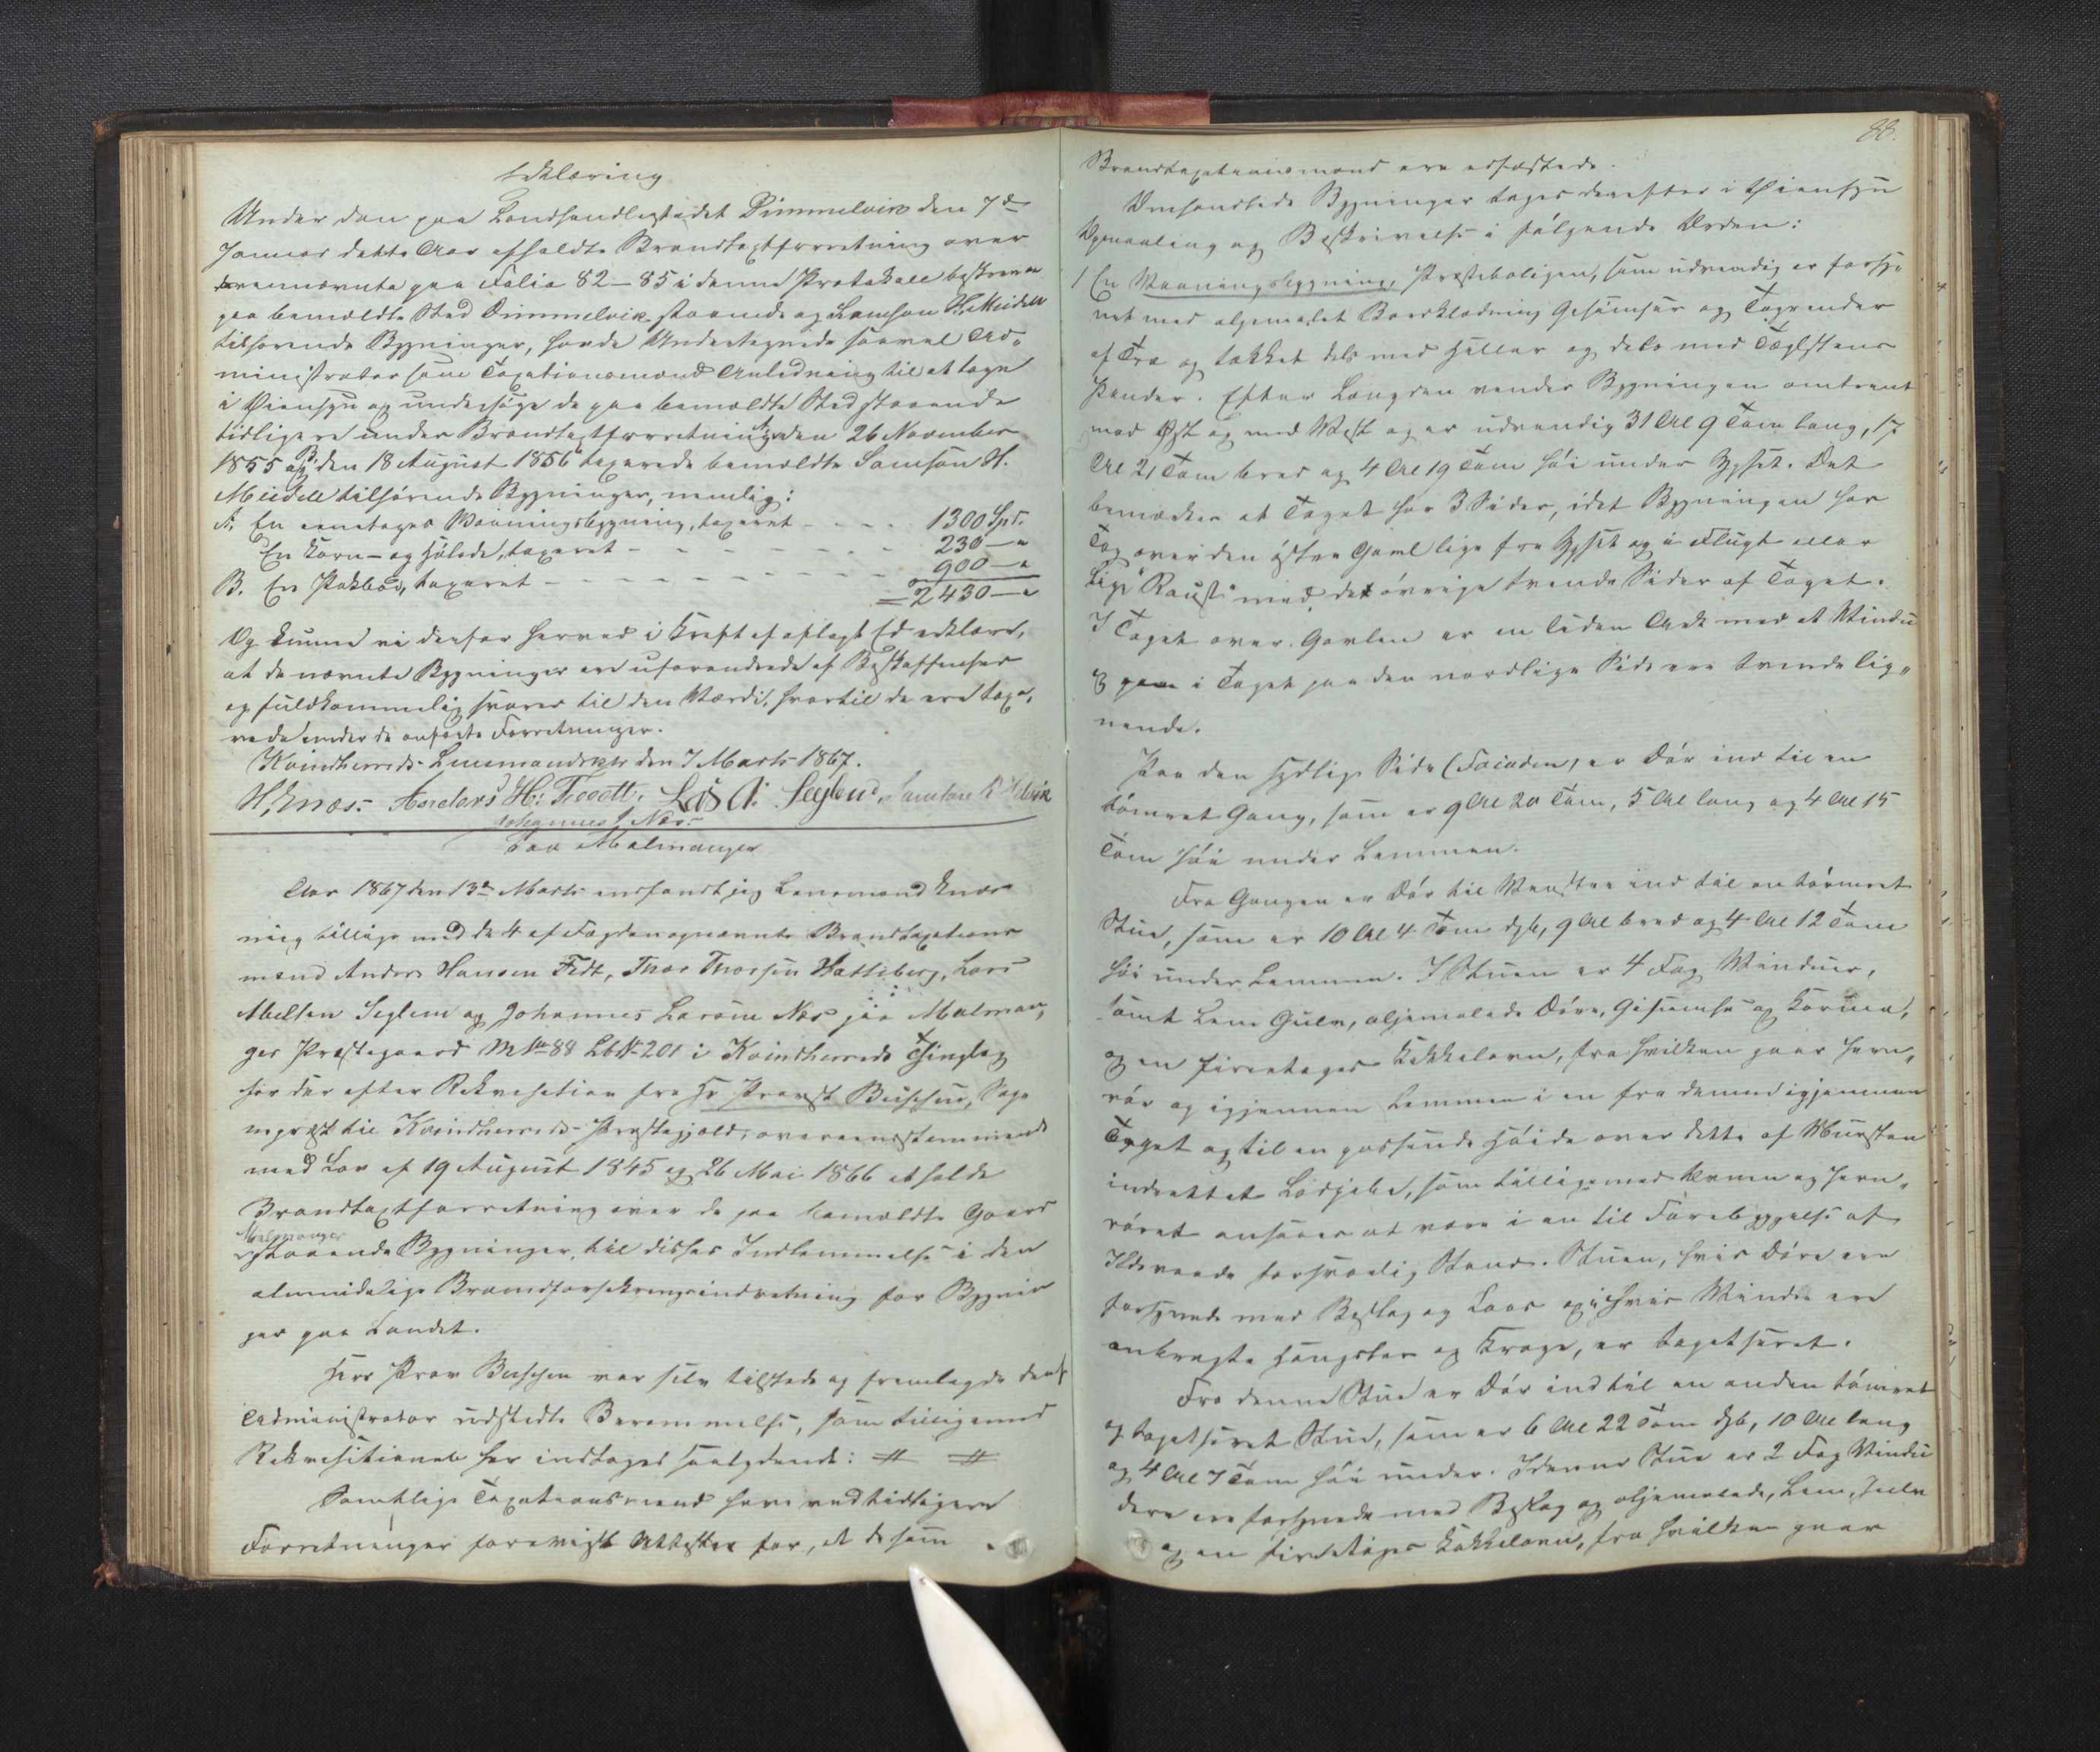 Erklæring
Under den paa Landhandlestedet Dimmelvik den 7de
Januar dette Aar afholdte Brandtaxtforretning over
benævnte paa Folio 82-85 i denne Protokoll beskrevne
paa bemeldte Sted Dimmelvik staaende og Samson H. Meidell
tilhørende Bygninger, havde Undertegnede saavel Ad-
ministrator som Taxationsmænd Anledning til at tage
i Øiensyn og undersøge de paa bemeldte Sted staaende
tidligere under Brandtaxtforretninger A den 26 November
1855 og B den 18 August 1856 taxerede bemeldte Samson H.
Meidell tilhørende Bygninger, nemlig:
A. En eenetages Vaaningsbygning, taxeret - - - - 1300 Spd.
En Korn- og Hølade, taxeret - - - - - - 230 - "
B. En Pakbod, taxeret - - - - - - - - 900 - "
= 2430 - "
Og kunne vi derfor herved i Kraft af aflagt Ed erklære,
at de nævnte Bygninger ere uforandrede af Beskaffenhed
og fuldkommelig svarer til den Værdi, hvortil de ere taxe-
rede under de anførte Forretninger.
Kvindherreds Lensmandsgaard den 7 Marts 1867.
H. Knæs. Anders H: Lars A: Seglem,
Johannes L Næs
Paa Malmanger
Aar 1867 den 13de Marts indfandt jeg Lensmand Knæs
mig tillige med de 4 af Fogden opnævnte Brandtaxations
mænd Anders Hansen Fedt, Thor Thorsen Hatteberg, Lars
Abelsen Seglem og Johannes Larsen Næs paa Malman-
ger Præstegaard M No 88 Lb No 201 i Kvindherreds Thinglag
for der efter Rekvisition fra Hr Provst Buschen, Sogne
præst til Kvindherreds Præstegjeld, overeensstemmende
med Lov af 19 August 1845 og 26 Mai 1866 at holde
Brandtaxtforretning over de paa bemeldte Gaard
Malmanger
staaende Bygninger, til disses Indlemmelse i den
almindelige Brandforsikringsindretning for Bygnin
ger paa Landet.
Herr Prov Buschen var selv tilstede og fremlagde den af
Administrator udstedte Berammelse, som tilligemed
Rekvisitionen her indtages saalydende: # #
Samtlige Taxationsmænd have ved tidligere
Forretninger foreviist Attester for, at de som
88.
Brandtaxationsmænd ere edfæstede.
Omhandlede Bygninger toges derefter i Øiensyn
Opmaaling og Beskrivelse i følgende Orden:
1 En Vaaningsbygning, Præsteboligen, som udvendig er forsy-
net med oljemalet Bordklædning Gesimser og Tagrender
af Træ og tækket dels med Heller og dels med Teglsteens
Pander. Efter Længden vender Bygningen omtrent
mod Øst og mod Vest og er udvendig 31 Al 9 Tom lang, 17
Al 21 Tom bred og 4 Al 19 Tom høi under Gesims. Det
bemærkes at Taget har 3 Sider, idet Bygningen har
Tag over den østre Gavl lige fra Gesims og i Flugt eller
lige "Raust" med det øvrige tvende Sider af Taget.
I Taget over Gavlen er en liden Ark med et Vindu
og paa i Taget paa den nordlige Side ere tvende lig-
nende.
Paa den sydlige Side (Faciaden) er Dør ind til en
tømret Gang, som er 9 Al 20 Tom, 5 Al lang og 4 Al 15
Tom høi under Lemmen.
Fra Gangen er Dør til Venstre ind til en tømret
Stue, som er 10 Al 4 Tom dyb, 9 Al bred og 4 Al 12 Tom
høi under Lemmen. I Stuen er 4 Fag Vinduer,
samt Lem Gulv, oljemalede Døre, Gesimse og Karme,
og en fireetages Kakkelovn, fra hvilken gaar Jern-
rør og igjennem Lemmen i en fra denne igjennem
Taget og til en passende Høide over dette af Muursten
indrettet Lodpibe, som tilligemed Ovnen og Jern-
røret ansaaes at være i en til Forebyggelse af
Ildsvaade forsvarlig Stand. Stuen, hvis Døre ere
forsynede med Beslag og Laas og i hvis Vindue ere
anbragte Hængsler og Kroge, er tapetseret.
Fra denne Stue er Dør ind til en anden tømret
og tapetseret Stue, som er 6 Al 22 Tom dyb, 10 Al lang
og 4 Al 7 Tom høi under. I denne Stue er 2 Fag Vindu
Døre ere forsynede med Beslag og oljemalede, Lem, Gulv
og en tireetages Kakkelovn, fra hvilken gaar